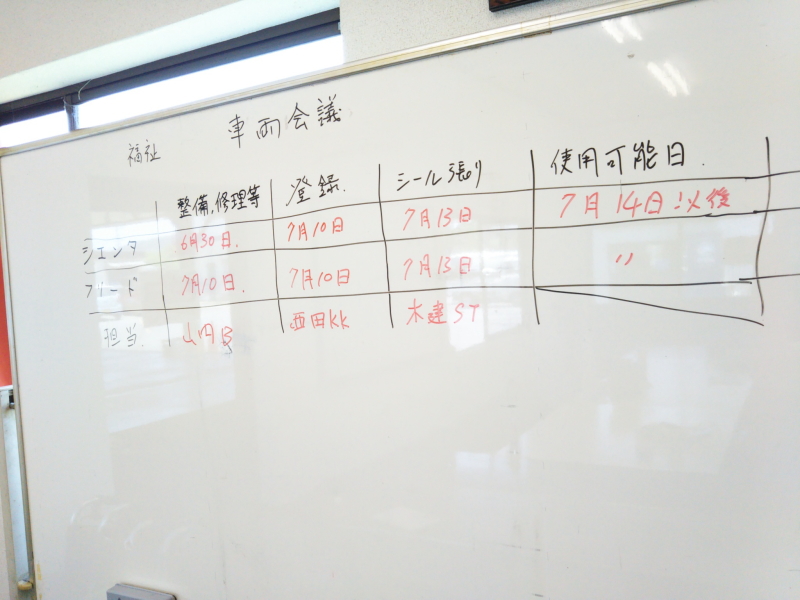 車両会議
福祉
整備,修理等 登録. シール張り 使用可能日.
シエンタ 6月30日. 7月10日 7月13日 7月14日以後
フリード 7月10日. 7月10日 7月13日 〃
担当. 西田KK 木建ST